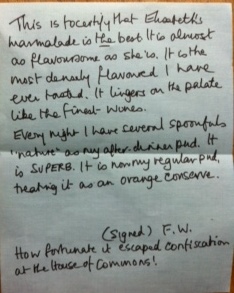 This is to certify that Elizabeth's
marmalade is the best. It is almost
as flavoursome as she is. It is the
most densely flavoured I have
ever tasted. It lingers on the palate
like the finest wines.
Every night I have several spoonfuls
"nature" as my after-dinner pud. It
is SUPERB. It is now my regular pud,
treating it as an orange conserve.
(signed) F.W.
How fortunate it escaped confiscation
at the House of Commons!